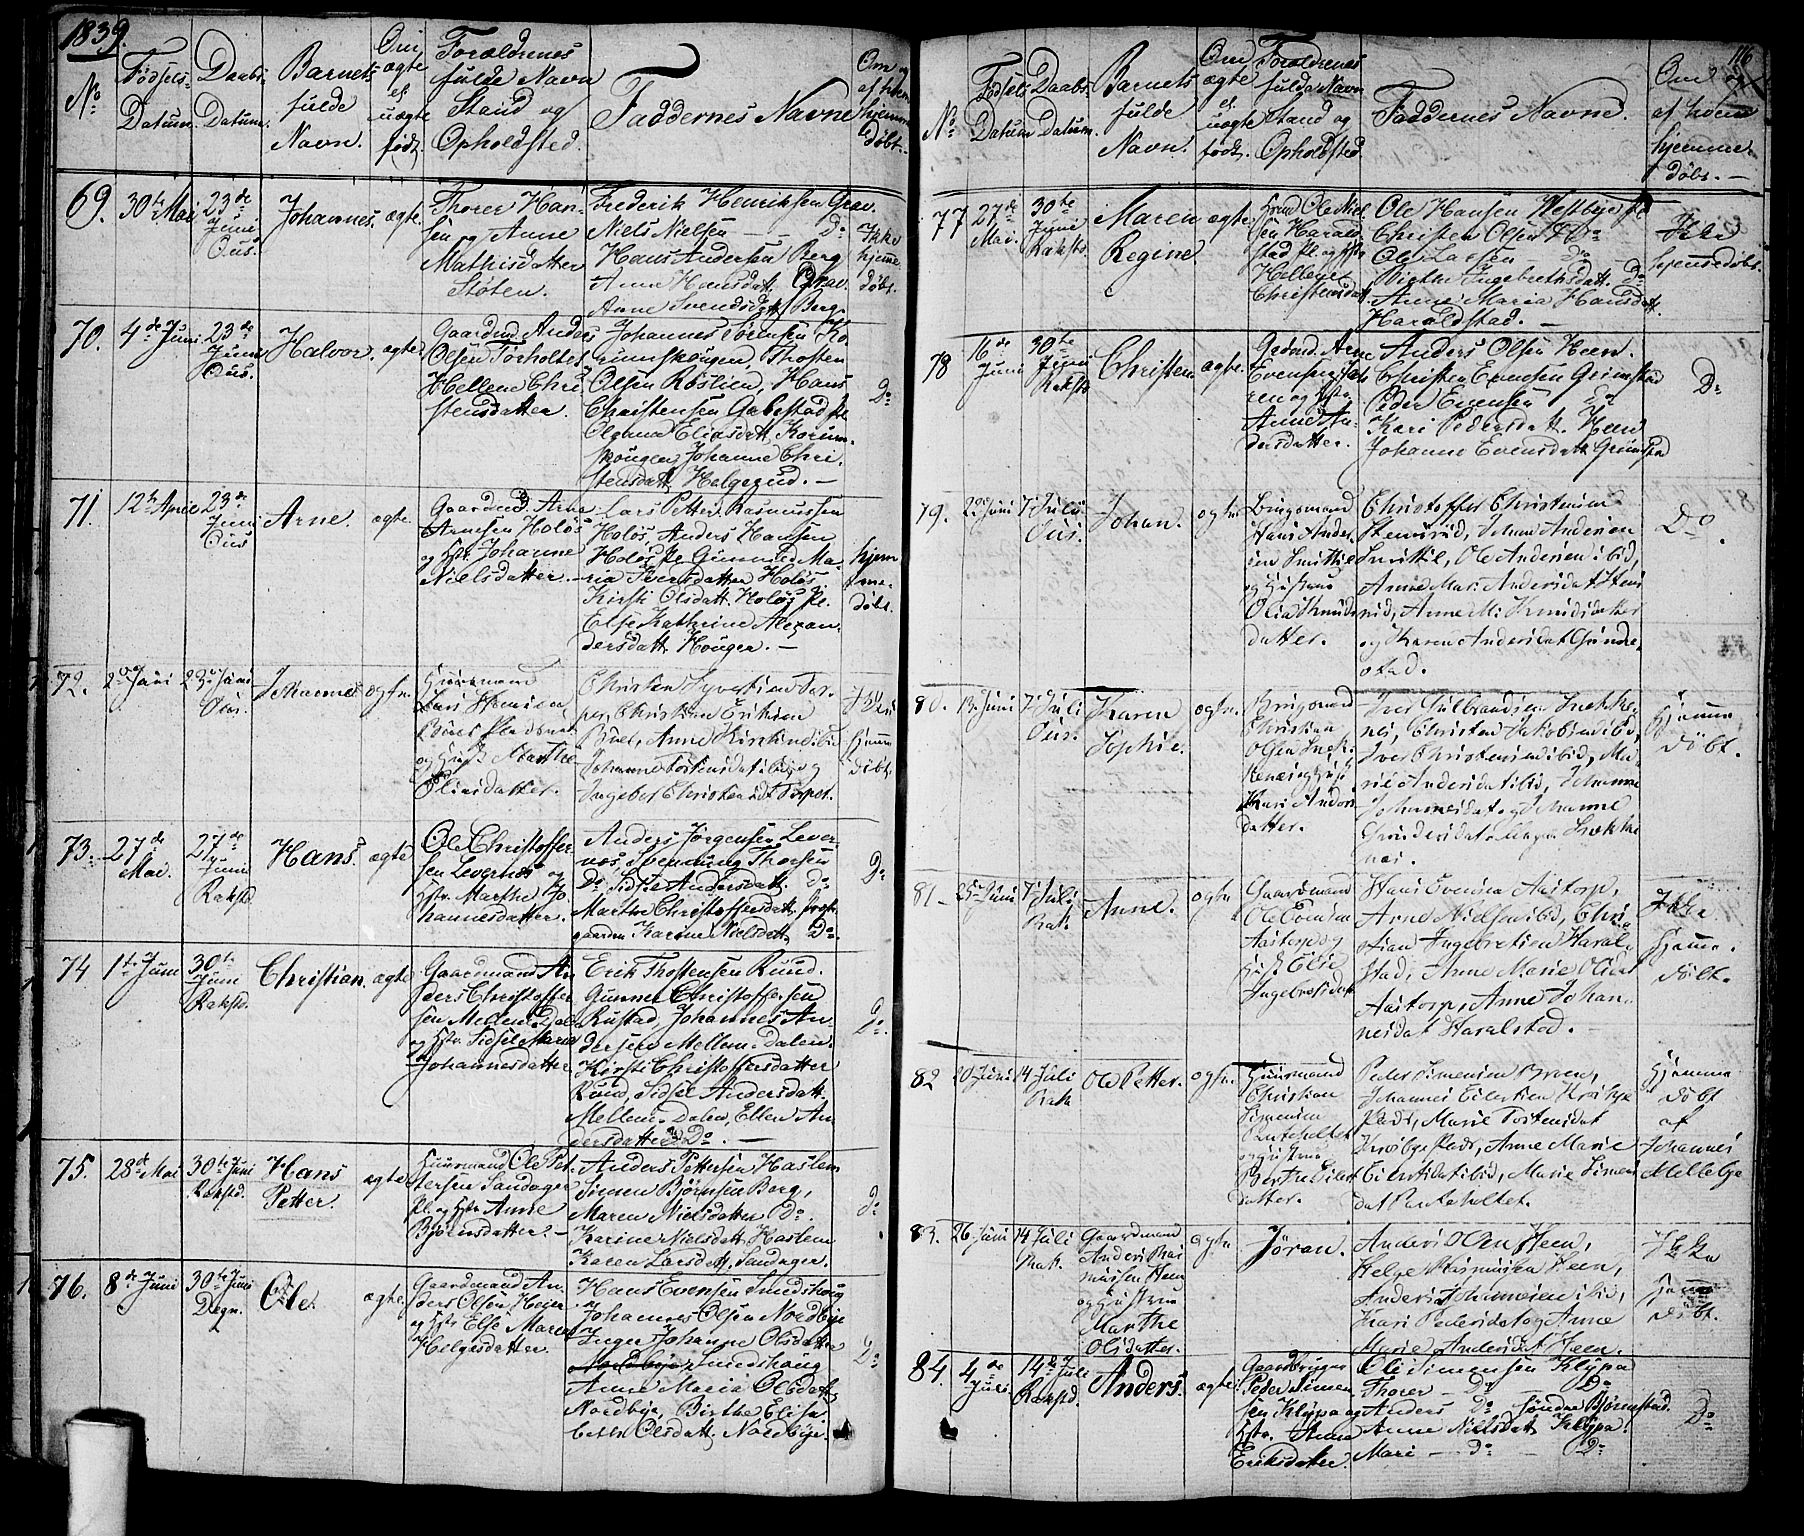 1839.
No
Fødsels-
Datum.
Daabs-
Datum.
Barnets
fulde
Navn.
Om
ægte
el
uægte
født.
Forældrenes
fulde Navn
Stand og
Opholdsted.
Faddernes Navne
Om og
af hvem
hjemme
døbt.-
69.
30te Mai
23de
Juni
Ous.
Johannes.
ægte.
Thorer Han-
sen og Anne
Mathisdatter
Støten.
Frederik Henriksen Grav.
Niels Nielsen - - Do
Hans Andersen Berg
Anne Hansdatt. Grav.
Anne Svendsdatt Berg.
Ikke
hjeme
døbt.
70.
4de Juni
23de
Juni
Ous.
Halvor.
ægte.
Gaardmd Anders
Olsen Torholtet
Hellene Chri-
stensdatter.
Johannes Sørensen Ko-
rumskougen, Thosten
Olsen Røstien, Hans
Christensen Gabestad pl.
Olgina Eliasdatt. Korum-
skougen, Johanne Chri-
stensdatt. Helgerud. -
Do
71.
12te April
23de
Juni
Ous
Arne.
ægte.
Gaardmd Arne
Arnesen Holøs
og Hst. Johanne
Nielsdatter. -
Lars Petter Rasmussen
Holøs, Anders Hansen
Holøs pl. Gunnild Ma-
ria Iversdatter Holøs,
Kirsti Olsdatt. Holøs pl.
Else Kathrine Alexan-
dersdatt. Houger. -
hjem
me-
døbt.
72.
2 Juni
23 Juni
Ous.
Johannes
ægte.
Huusmand
Lars Hansen
og Hust. Marthe
Olsdatter.
Christen Syvertsen Tor-
per, Christian Eriksen
Anne
Johanne Torstensdat ibid og
Ingebor Christensdt Torper.
Ikke
hjemme
døbt.
73.
27de
Mai.
27de
Juni
Rakstd.
Hans.
ægte
Ole Christoffer
sen Levernæs og
Hstr. Marthe Jo-
hannesdatter.
Anders Jørgensen Lever-
næs, Svennung Thorsen
Do. Sidse Andersdatt. Do
Marthe Christoffersdatt. Præst-
gaarden Karine Nielsdatt. Do.
Do
74
1te Juni
30te
Juni
Rakstd.
Christian.
ægte
Gaardmand An-
ders Christoffer
sen Mellem Dal
og Hstr. Sidsel Marie
Johannesdatter
Erik Thostensen Rund.
Gunner Christoffersen
Rustad, Johannes An-
dersen Mellem-Dalen.
Kirsti Christoffersdatter
Rund, Sidsel Andersdatt.
Mellem-Dalen, Ellen An-
dersdatter Do. -
Do.
75.
28de Mai
30te Juni
Rakstd.
Hans
Petter.
ægte
Huusmand Ole Pet-
tersen Sandager
pl. og Hstr Anne
Bjørnsdatter. -
Anders Pettersen Haslem
Simen Bjørnsen Berg,
Maren Nielsdatter Do.
Karine Nielsdatt. Haslem
Karen Larsdatt. Sandager.
Do
76.
8de Juni
30te Juni
Degn.
Ole.
ægte.
Gaardmand An-
ders Olsen Heier
og Hstr Else Maren
Helgesdatter.
Hans Evensen Smidshoug
Johannes Olsen Nordbye
Inger Johanne Olsdatter
Nordbye, Smedshoug
Anne Maria Olsdatt.
Nordbye, Birthe Elisa-
beth Olsdatt. Nordbye.
Do
116
No
Fødsels
Datum
Daabs-
Datum.
Barnets
fulde
Navn.
Om
ægte
el.
uægte
født.
Forældrenes
fulde Navn
Stand og
Opholdsted
Faddernes Navne.
Om og
af hvem
hjemme-
døbt. -
77
27de
Mai.
30te
Juni
Rakstd
Maren
Regine
ægte.
Hmd Ole Niel-
sen Harald-
stad pl. og Hstr
Hellene
Christensdatt.
Ole Hansen Westbye pl.
Christen Olsen Do
Ole Larsen - Do -
Birthe Ingebrethsdatt. Do
Anne Maria Hansdatt.
Haraldstad. -
Ikke
hjemedøbt.
78
16de
Juni
30te
Juni
Rakstd
Christen
ægte.
Grdmd. Arne
Evensen
og Hstr
Anne An-
dersdatter.
Anders Olsen Heen.
Christen Evensen Grimstad
Peder Evensen Do
Kari Pedersdatt. Heen
Johanne Evensdatt. Grimstad
Do
79.
22 Juni
7 Juli
Ous.
Johan.
ægte.
Brugsmand
Hans Ander-
sen Smittil
og Hustrue
Olia Knuds
datter.
Christoffer Christensen
Stensrud, Johan Andersen
Smittil, Ole Andersen ibid,
Anne Mari Andersdat Stens
rud, Anne M. Knudsdatter
og Karen Andersdat Grinde-
stad.
Do.
80.
13 Juni
7 Juli
Ous.
Karen
Sophie.
ægte.
Brugsmand
Christian
Olsen Snek-
kenes og Hust.
Kari Anders
datter.
Iver Gulbrandsen Snekke-
nes, Christen Jakobsen ibid,
Iver Christensen ibid, Ma-
rie Andersdat ibid, Johanne
Johannesdat og Johanne
Snekke
nes.
Hjemme
døbt.
81-
25 Juni
7 Juli
Rak.
Anne.
ægte
Gaardmand
Ole Evensen
Aastorp og
Hust. Elie
Ingebretsdat
Hans Evensen Aastorp,
Arne Nielsen ibid, Chri-
stian Ingebretsen Haral-
stad, Anne Marie Olsdat
Aastorp, Anne Johan-
nesdat Haralstad. -
Ikke
hjemme-
døbt.
82
20 Juni
14 Juli
Rak
Ole Petter.
ægte.
Huusmand
Christian
Simensen
Panteholtet
og Hustrue
Berthe Eilerts
datter.
Peder Simensen Broen,
Johannes Eilertsen Kraabye
Plads, Marie Torstensdat
Kraabye Plads, Anne Marie
Eilertsdat ibid, Marie Simens
dat Panteholtet.
Hjemme
døbt
af
Johannes
Mellebye
83.
26 Juni
14 Juli
Rak.
Gaardmand
Anders Ras
mussen Heen
og Hustrue
Marthe
Olsdatter.
ægte
Jøran.
Anders Olsen Heen,
Helge Rasmussen Heen,
Anders Johannesen ibid,
Kari Pedersdat og Anne
Marie Andersdat Heen.
Ikke
hjemme
døbt.
84.
4de
Juli
14de Juli
Rakstd.
Anders.
ægte.
Gaardbruger
Peder Simen
sen Klypa og
Hstr. Anne
Eriksdatter.
Ole Simensen Klypa
Thorer - Do - Do
Anders Do Søndre Bjørnstad.
Anne Nielsdatt. Klypa.
Mari - do - Do
Do